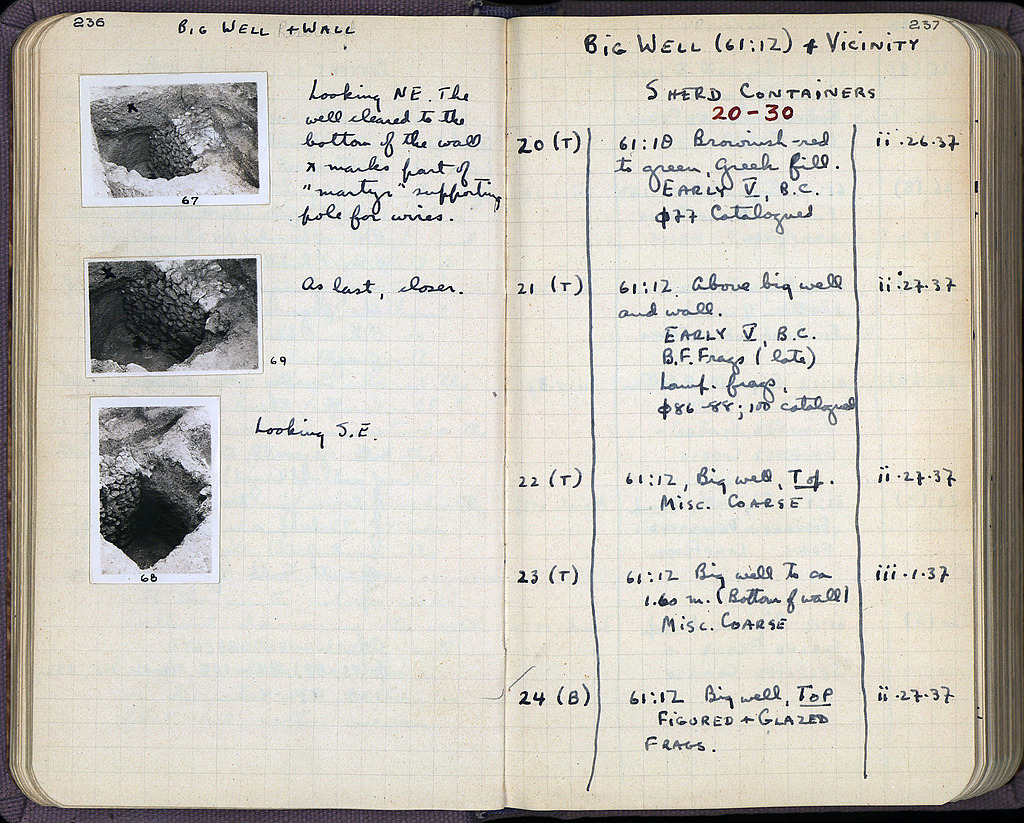 236
BIG WELL + WALL
67
Looking NE. The
well cleared to the
bottom of the wall
x marks part of
"martyr" supporting
pole for wires.
69
As last, closer.
68
Looking S.E.
237
BIG WELL (61:12) + VICINITY
SHERD CONTAINERS
20-30
20 (T) 61:10 Brownish-red ii.26.37
to green, Greek fill.
EARLY V, B.C.
φ77 Catalogued
21 (T) 61:12. Above big well ii.27.37
and wall.
EARLY V, B.C.
B.F. Frags (late)
Lamp. frags,
φ86-88; 100 catalogued
22 (T) 61:12, Big well, Top. ii.27.37
MISC. COARSE
23 (T) 61:12 Big well to ca iii.1.37
1.60 m. (Bottom of wall)
MISC. COARSE
24 (B) 61:12 Big well, TOP ii.27.37
FIGURED + GLAZED
FRAGS.